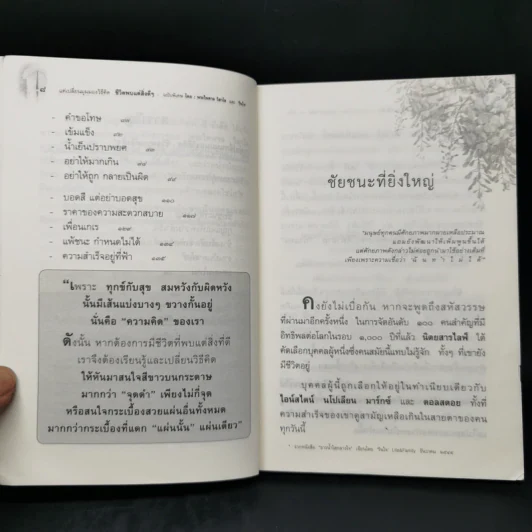 ๘ แค่เปลี่ยนมุมมองวิธีคิด ชีวิตพบแต่สิ่งดีๆ
- คำขอโทษ
- เข้มแข็ง
- น้ำเย็นปราบพยศ
- อย่าให้มากเกิน
- อย่าให้ถูก กลายเป็นผิด
- บอดสี แต่อย่าบอดสุข ๑๑๐
- ราคาของความสะดวกสบาย
- เพื่อนเกเร
- แพ้ชนะ กำหนดไม่ได้
- ความสำเร็จอยู่ที่ฟ้า
"เพราะ ทุกข์กับสุข สมหวังกับผิดหวัง
นั้นมีเส้นแบ่งบางๆ ขวางกั้นอยู่
นั่นคือ "ความคิด" ของเรา
ดังนั้น หากต้องการมีชีวิตที่พบแต่สิ่งที่ดี
เราจึงต้องเรียนรู้และเปลี่ยนวิธีคิด
ให้หันมาสนใจสีขาวบนกระดาษ
มากกว่า "จุดดำ" เพียงไม่กี่จุด
หรือสนใจกระเบื้องสวยแผ่นอื่นทั้งหมด
มากกว่ากระเบื้องที่แตก "แผ่นนั้น" แผ่นเดียว"
ชัยชนะที่ยิ่งใหญ่
"มนุษย์ทุกคนมีศักยภาพมากมายเหลือประมาณ
และยังพัฒนาให้เพิ่มพูนขึ้นได้
แต่ศักยภาพดังกล่าวไม่ค่อยถูกนำมาใช้อย่างเต็มที่
เพียงเพราะความเชื่อว่า ฉันทำไม่ได้"
คงยังไม่เบื่อกัน หากจะพูดถึงสหัสวรรษ
ที่ผ่านมาอีกครั้งหนึ่ง ในการจัดอันดับ ๑๐๐ คนสำคัญที่มี
อิทธิพลต่อโลกในรอบ ๑,๐๐๐ ปีที่แล้ว นิตยสารไลฟ์ ได้
คัดเลือกบุคคลผู้หนึ่งซึ่งคนสมัยนี้แทบไม่รู้จัก ทั้งๆ ที่เขายัง
มีชีวิตอยู่
บุคคลผู้นี้ถูกเลือกให้อยู่ในทำเนียบเดียวกับ
ไอน์สไตน์ นโปเลียน มาร์กซ์ และ ตอลสตอย ทั้งที่
ความสำเร็จของเขาดูสามัญเหลือเกินในสายตาของคน
ทุกวันนี้